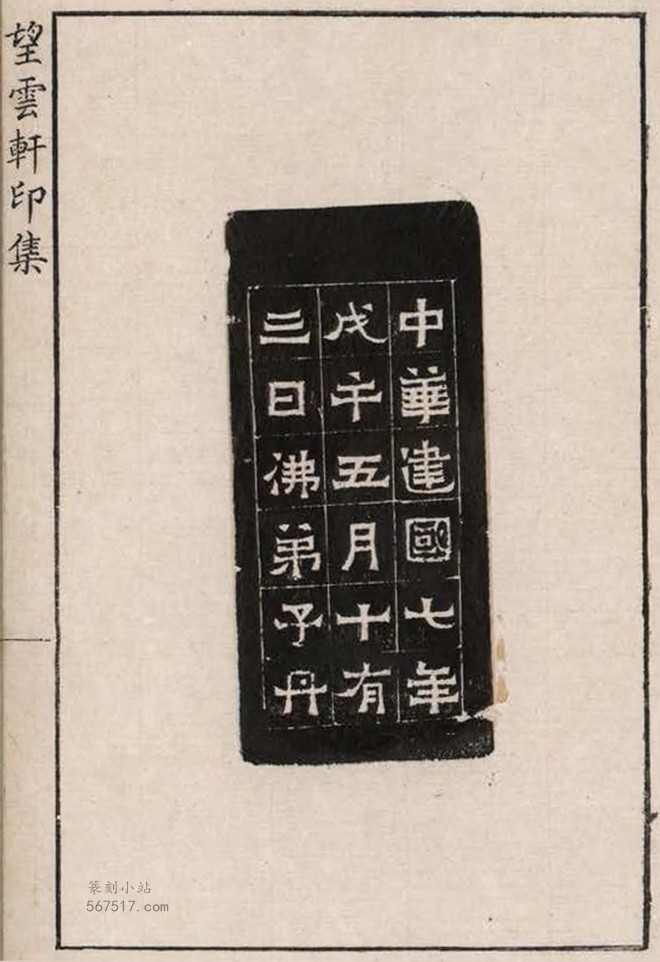 望雲軒印集
中華建國七年
戊午五月十有
三日佛弟子丹
篆刻小站
567517.com